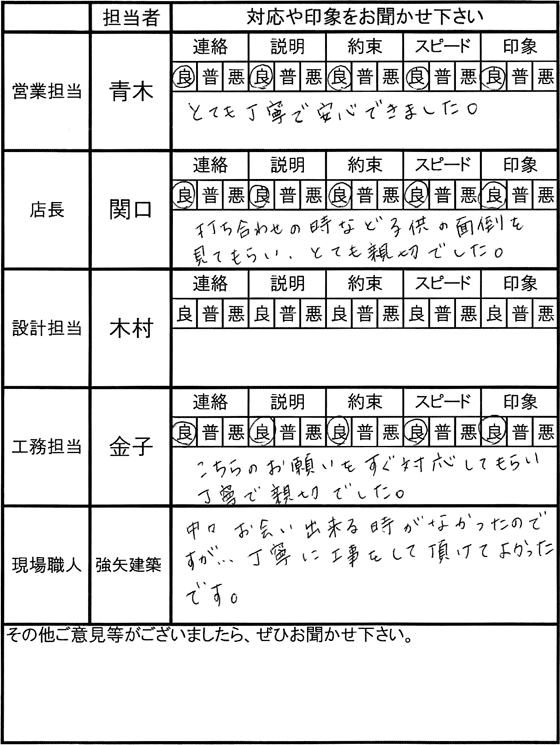 担当者 対応や印象をお聞かせ下さい
営業担当 青木
連絡 説明 約束 スピード 印象
良 普 悪 良 普 悪 良 普 悪 良 普 悪 良 普 悪
とても丁寧で安心できました。
店長 関口
連絡 説明 約束 スピード 印象
良 普 悪 良 普 悪 良 普 悪 良 普 悪 良 普 悪
打ち合わせの時など子供の面倒を
見てもらい、とても親切でした。
設計担当 木村
連絡 説明 約束 スピード 印象
良 普 悪 良 普 悪 良 普 悪 良 普 悪 良 普 悪
工務担当 金子
連絡 説明 約束 スピード 印象
良 普 悪 良 普 悪 良 普 悪 良 普 悪 良 普 悪
こちらのお願いをすぐ対応してもらい
丁寧で親切でした。
現場職人 強矢建築
中々 お会い出来る時がなかったので
すが… 丁寧に工事をして頂けてよかった
です。
その他ご意見等がございましたら、ぜひお聞かせ下さい。